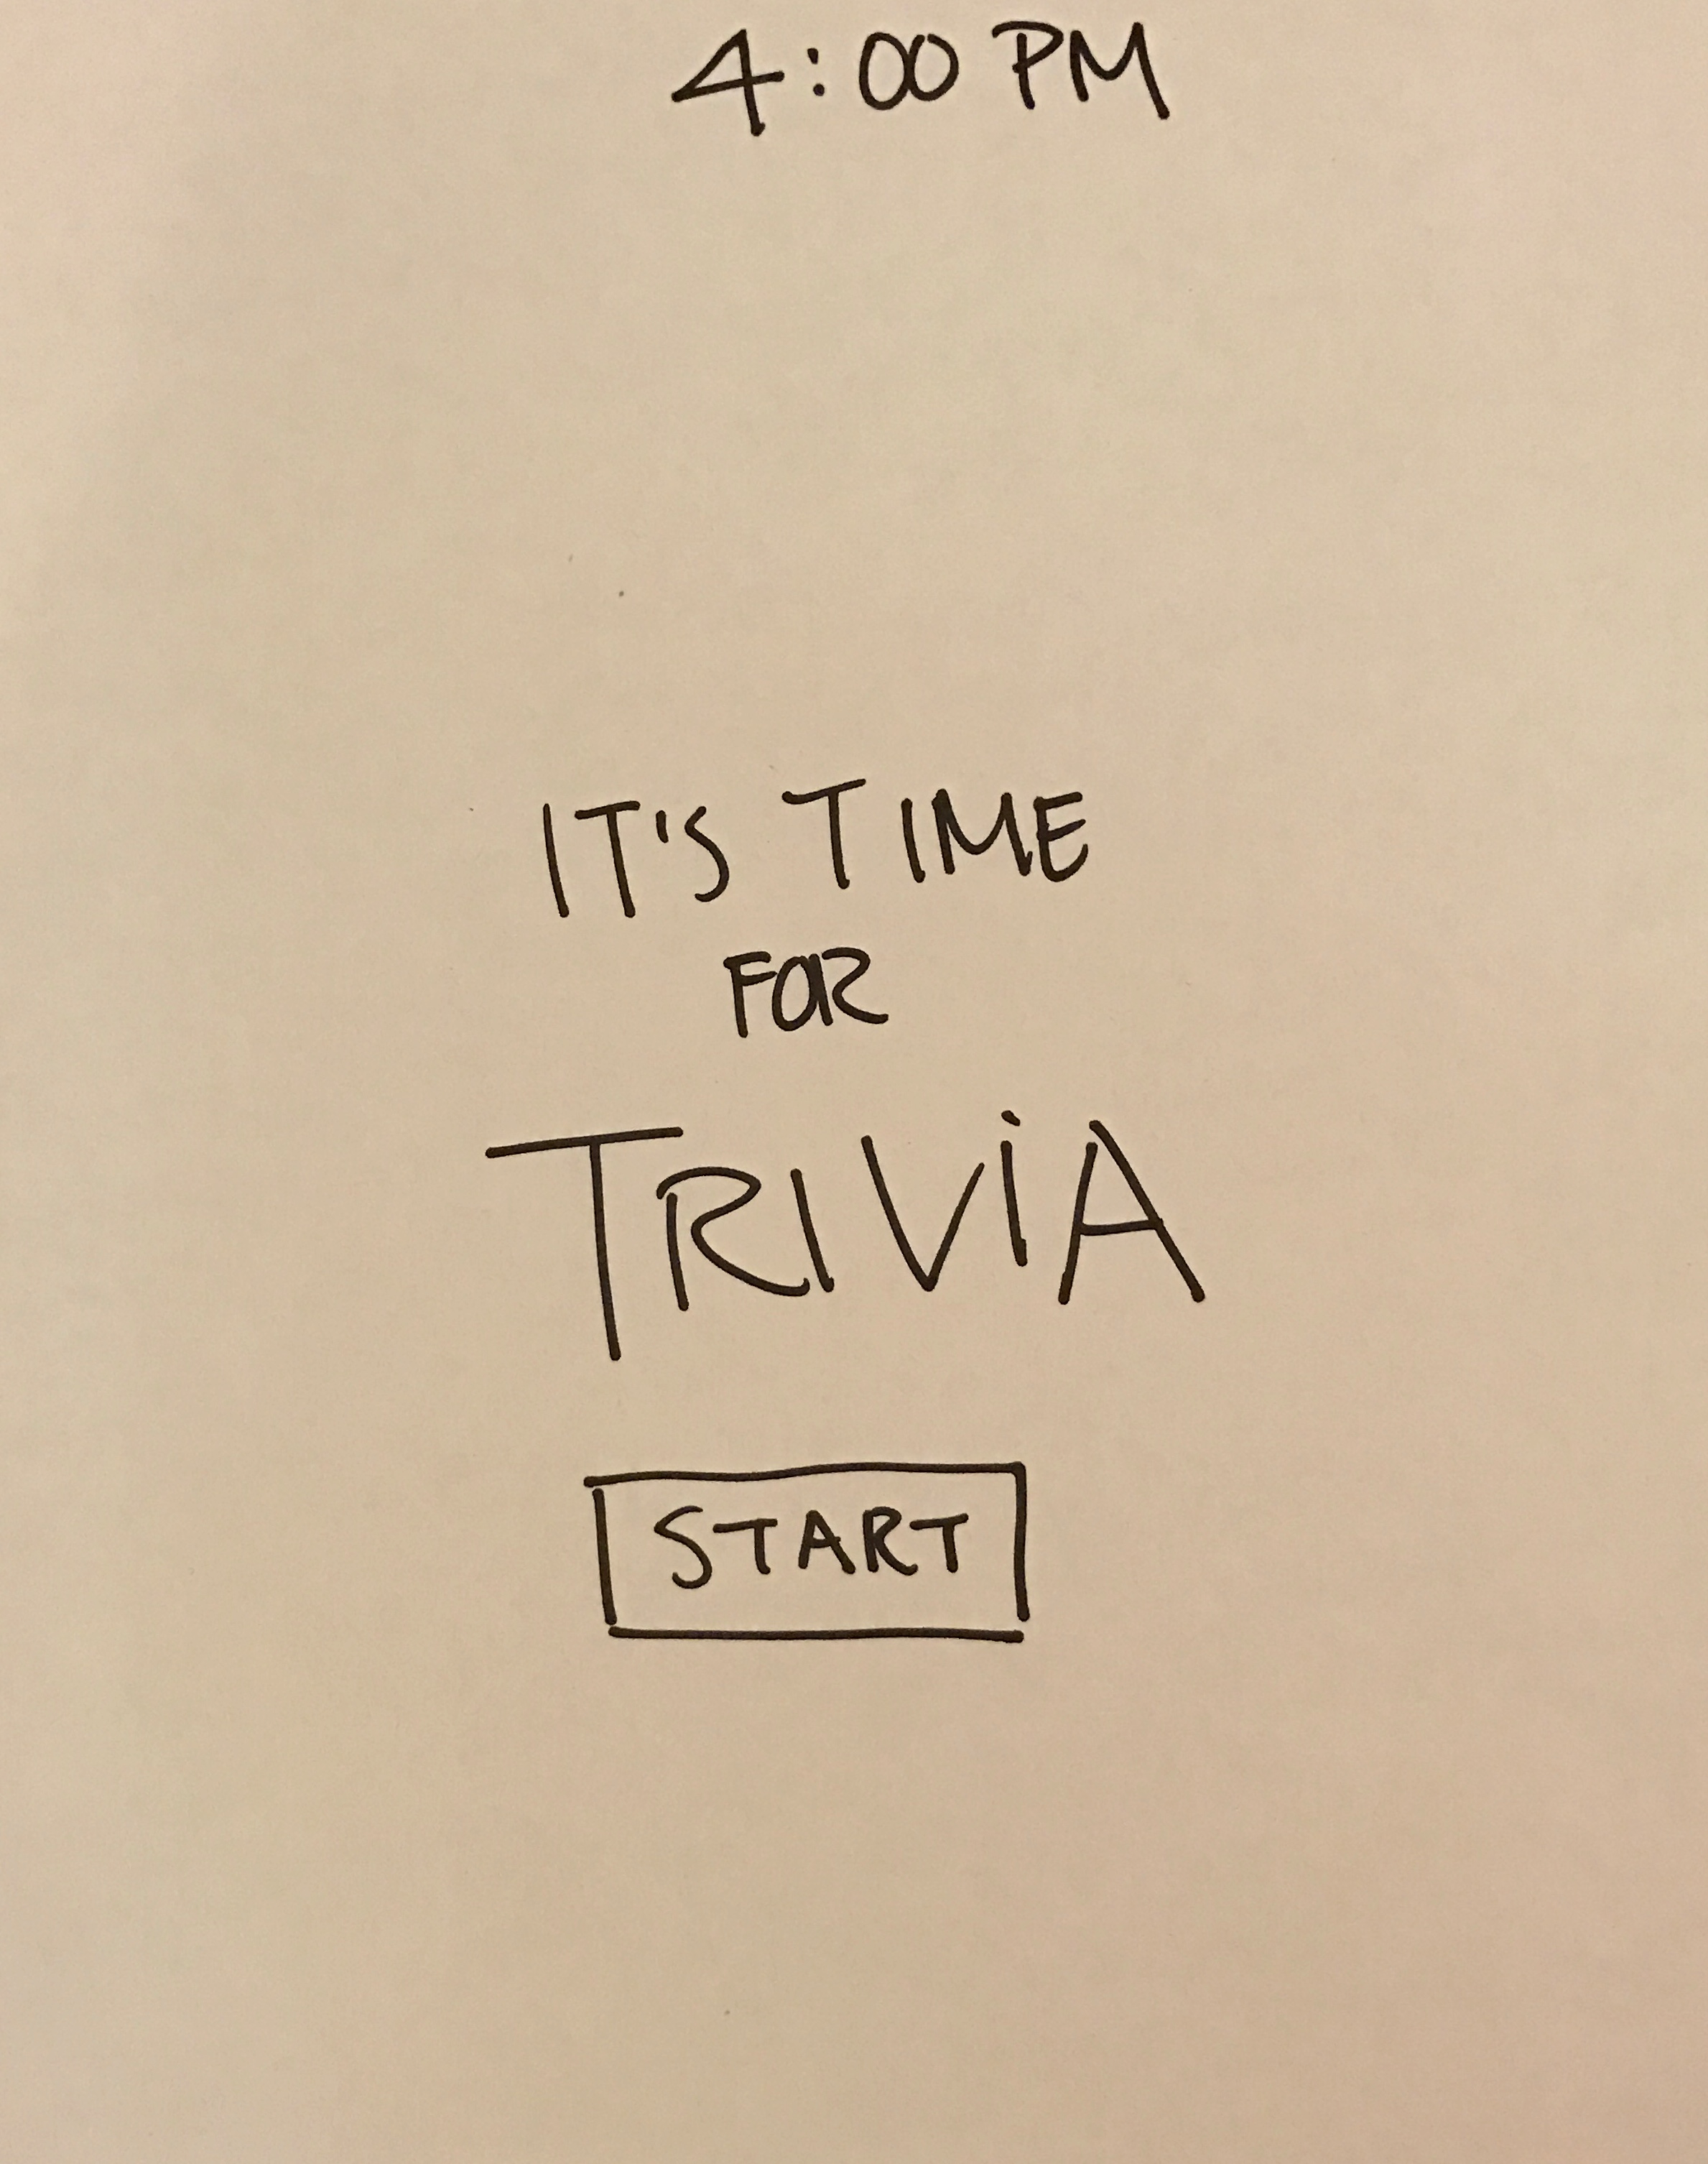 4:00 PM
IT'S TIME
FOR
TRIViA
START